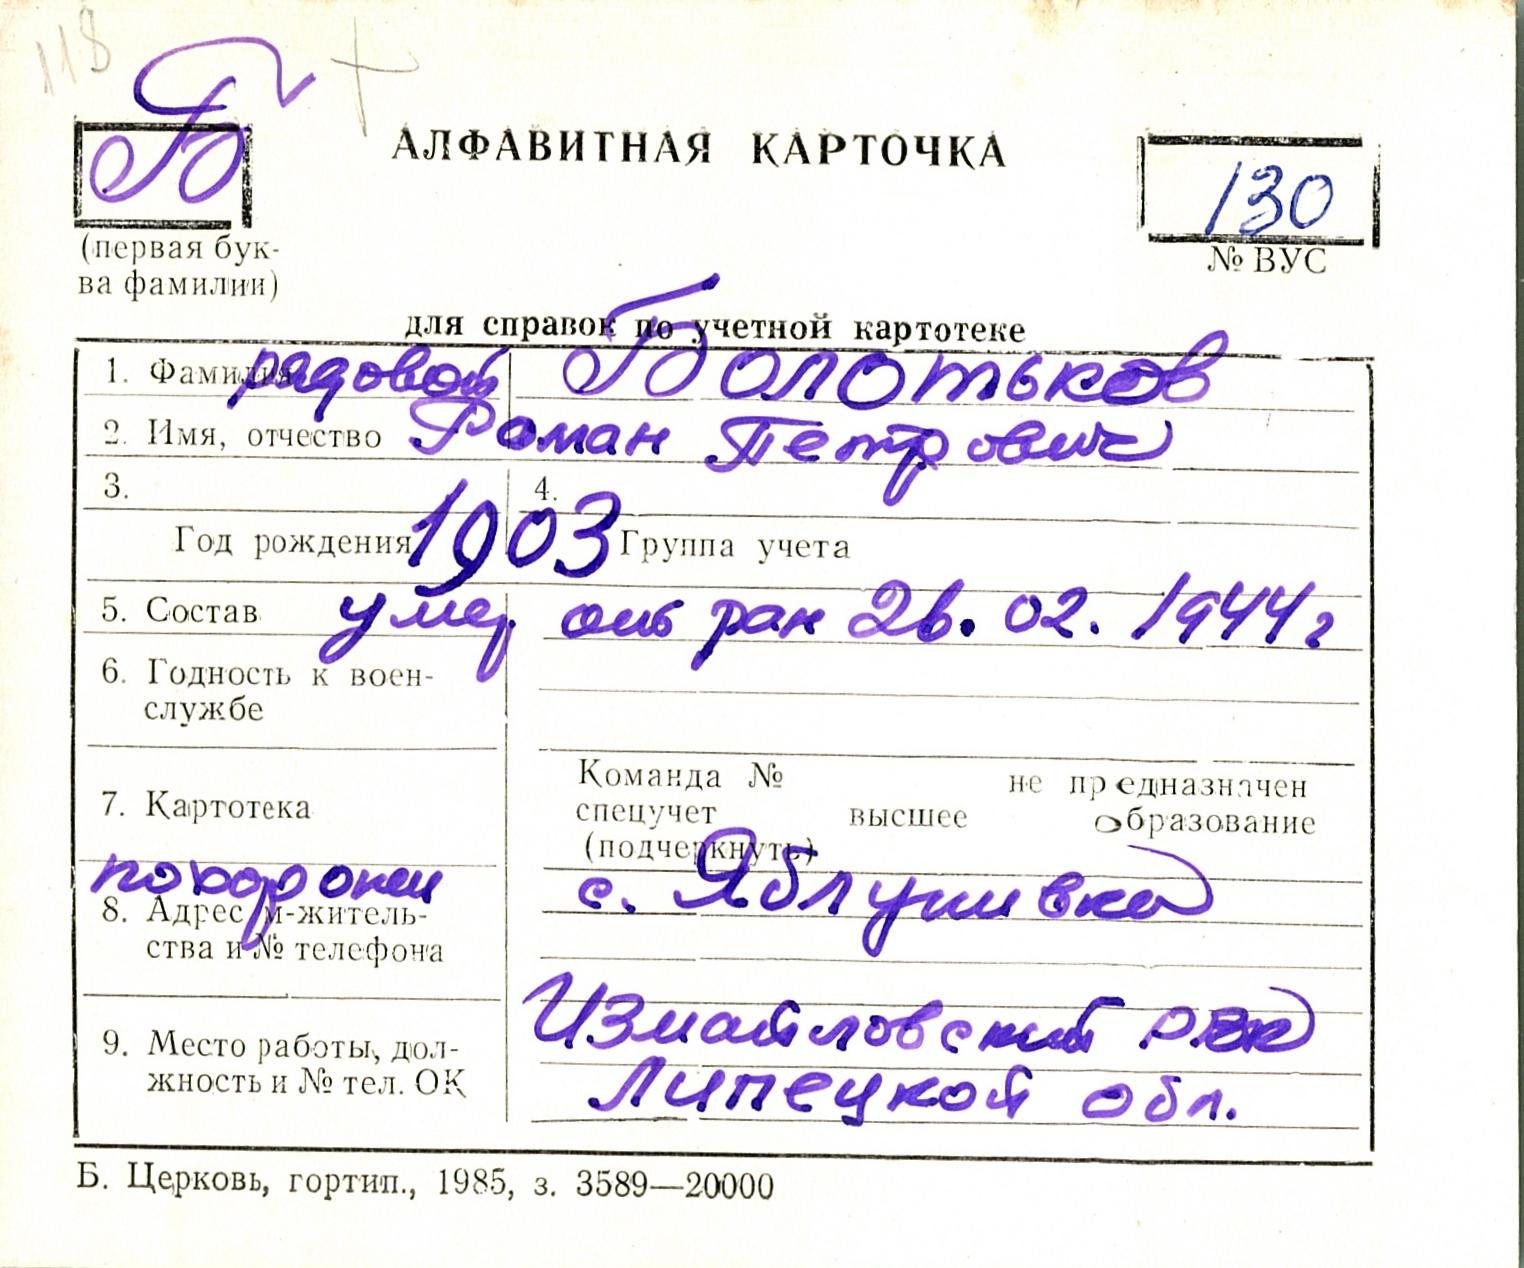 118
Б
АЛФАВИТНАЯ КАРТОЧКА
130
(первая бук-
ва фамилии)
№ ВУС
для справок по учетной картотеке
1. Фамилия рядовой Болотьков
2. Имя, отчество Роман Петрович
3. 4.
Год рождения 1903 Группа учета
5. Состав умер от ран 26. 02. 1944 г
6. Годность к воен-
службе
Команда № не предназначен
7. Картотека
спецучет высшее образование
(подчеркнуть)
похоронен с. Яблунивка
8. Адрес м-житель-
ства и № телефона
Измайловский РВК
9. Место работы, дол-
жность и № тел. ОК
Липецкой обл.
Б. Церковь, гортип., 1985, з. 3589—20000